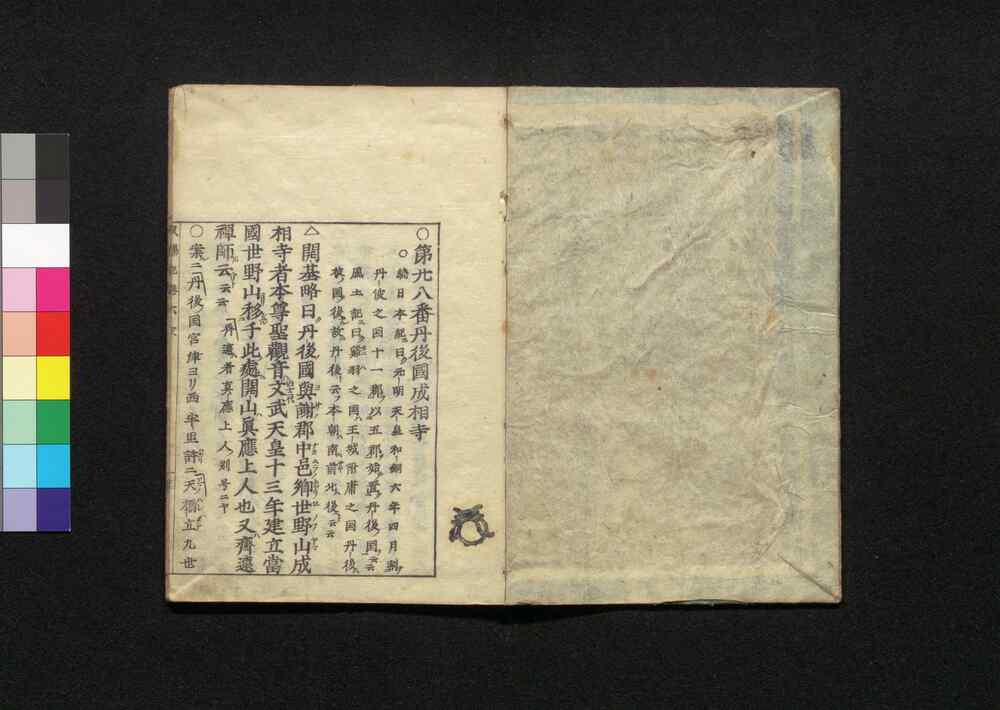 ○第廿八番丹後國成相寺
○續日本記曰元明天皇和銅六年四月割
丹波之國十一郡以五郡始置丹後國云云
風土記曰 之國王城附庸之國丹後
 國後故丹後云本朝南前北後云云
△開基略曰丹後國與謝郡中邑鄉世野山成
相寺者本尊聖觀音文武天皇十三年建立當
國世野山移于此處開山眞應上人也又齊遠
禪師云云 齊遠者真應上人別号ニヤ
○案ニ丹後國宮津ヨリ西半里許ニ天橋立九世